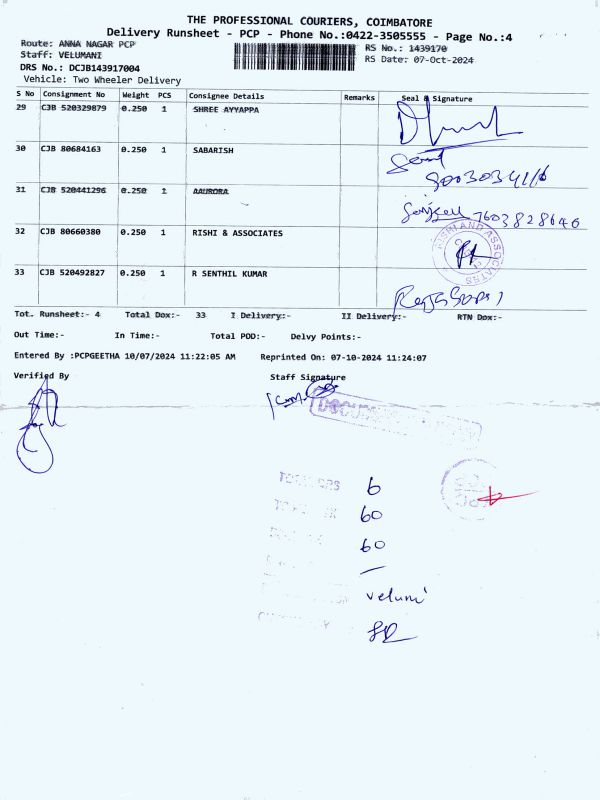 THE PROFESSIONAL COURIERS, COIMBATORE
Delivery Runsheet - PCP - Phone No.:0422-3505555 - Page No.:4
Route: ANNA NAGAR PCP
RS No.: 1439170
Staff: VELUMANI
RS Date: 07-Oct-2024
DRS No.: DCJB143917004
Vehicle: Two Wheeler Delivery
S No Consignment No Weight PCS Consignee Details Remarks Seal & Signature
29 CJB 520329879 0.250 1 SHREE AYYAPPA
30 CJB 80684163 0.250 1 SABARISH
31 CJB 520441296 0.250 1 AAURORA
7603828646
32 CJB 80660380 0.250 1 RISHI & ASSOCIATES
RISHI AND ASSOCIATES
33 CJB 520492827 0.250 1 R SENTHIL KUMAR
Tot. Runsheet:- 4 Total Dox:- 33 I Delivery:- II Delivery:- RTN Dox:-
Out Time:- In Time:- Total POD:- Delvy Points:-
Entered By :PCPGEETHA 10/07/2024 11:22:05 AM Reprinted On: 07-10-2024 11:24:07
Verified By Staff Signature
6
60
60
—
velumi